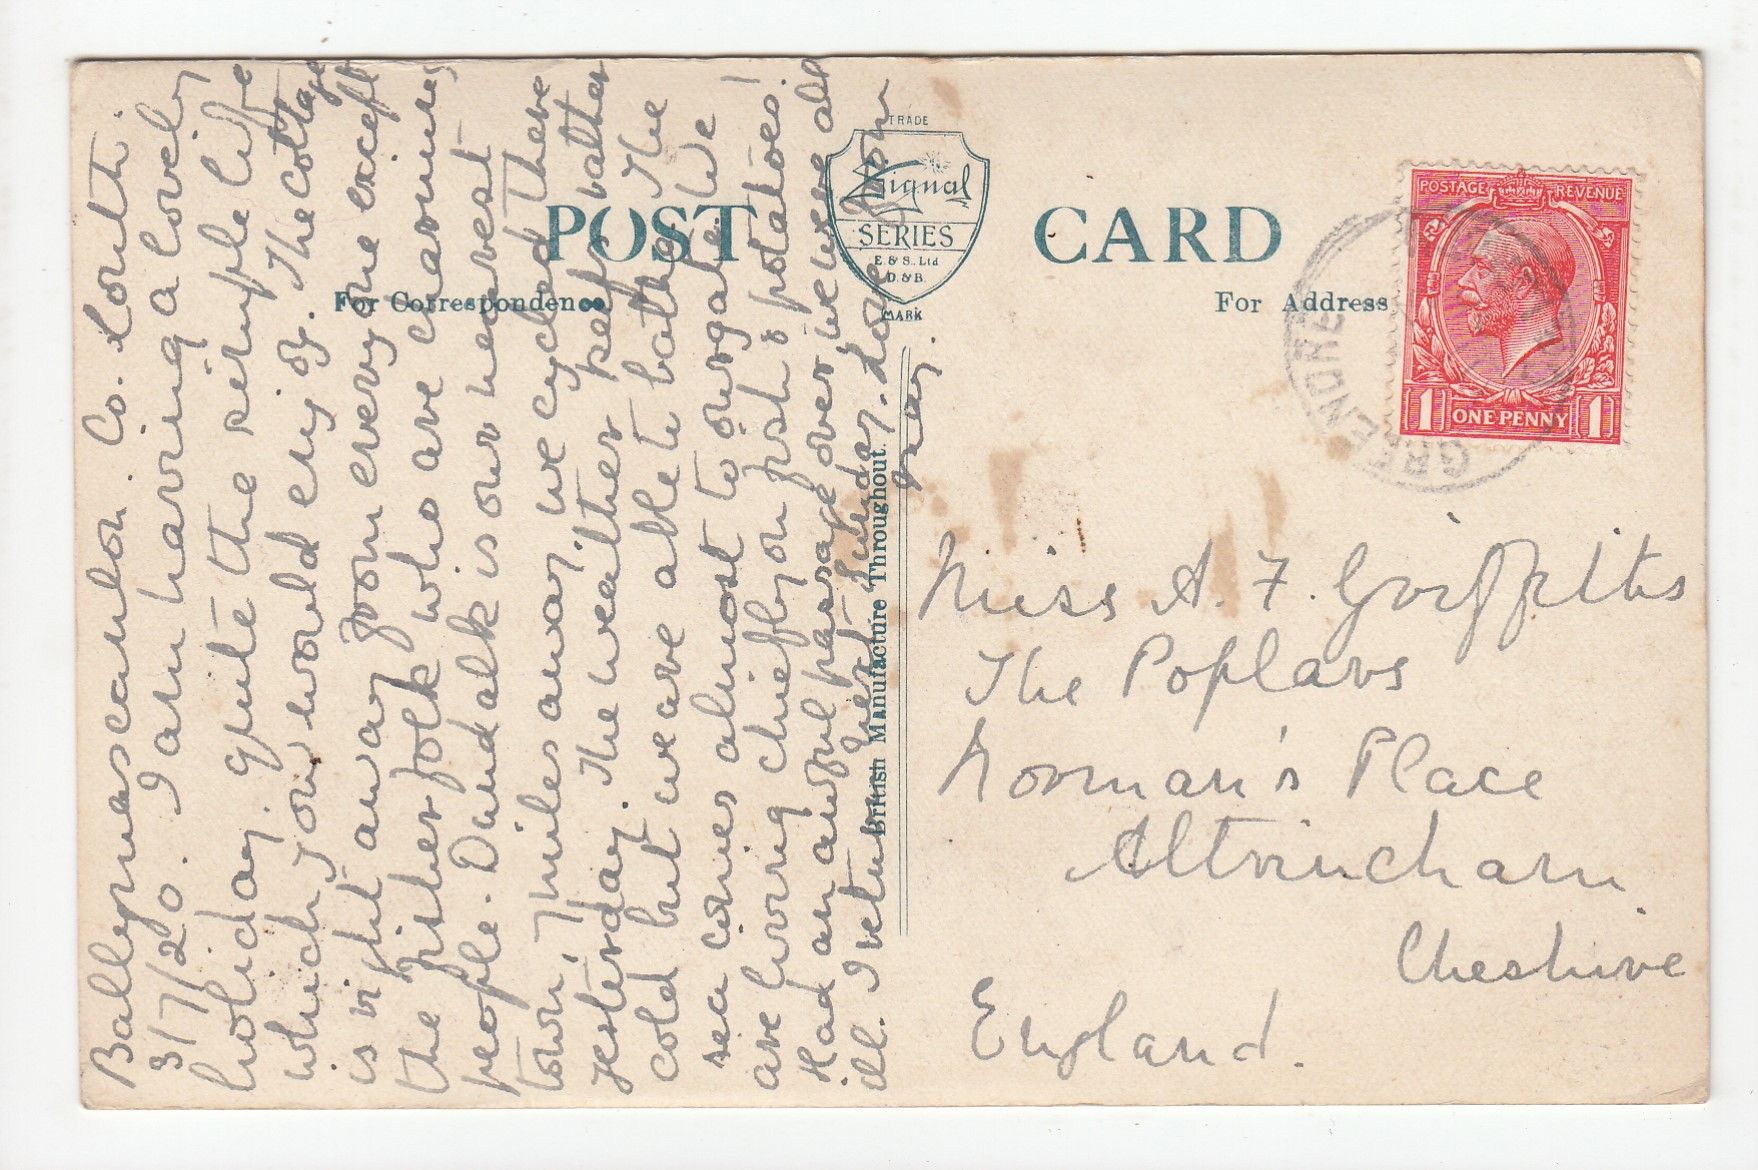 Ballymascanlon. Co. Louth.
3/7/20. I am having a lovely
holiday. quite the simple life
which you would enjoy. The cottage
is right away from everyone except
the fisher folk who are charming
people. Dundalk is our nearest
town, 7 miles away. we cycled there
yesterday. The weather keeps rather
cold but we are able to bathe. The
sea comes almost to our gate. We
are living chiefly on fish & potatoes!
Had an awful passage over we were all
ill. I return next Sunday. Love from
May.
POST CARD
For Correspondence
For Address
TRADE
Signal
SERIES
E & S. Ltd
D. & B.
MARK
British Manufacture Throughout.
POSTAGE REVENUE
1 ONE PENNY 1
GREENORE
Miss A. F. Griffiths
The Poplars
Norman's Place
Altrincham
Cheshire
England.